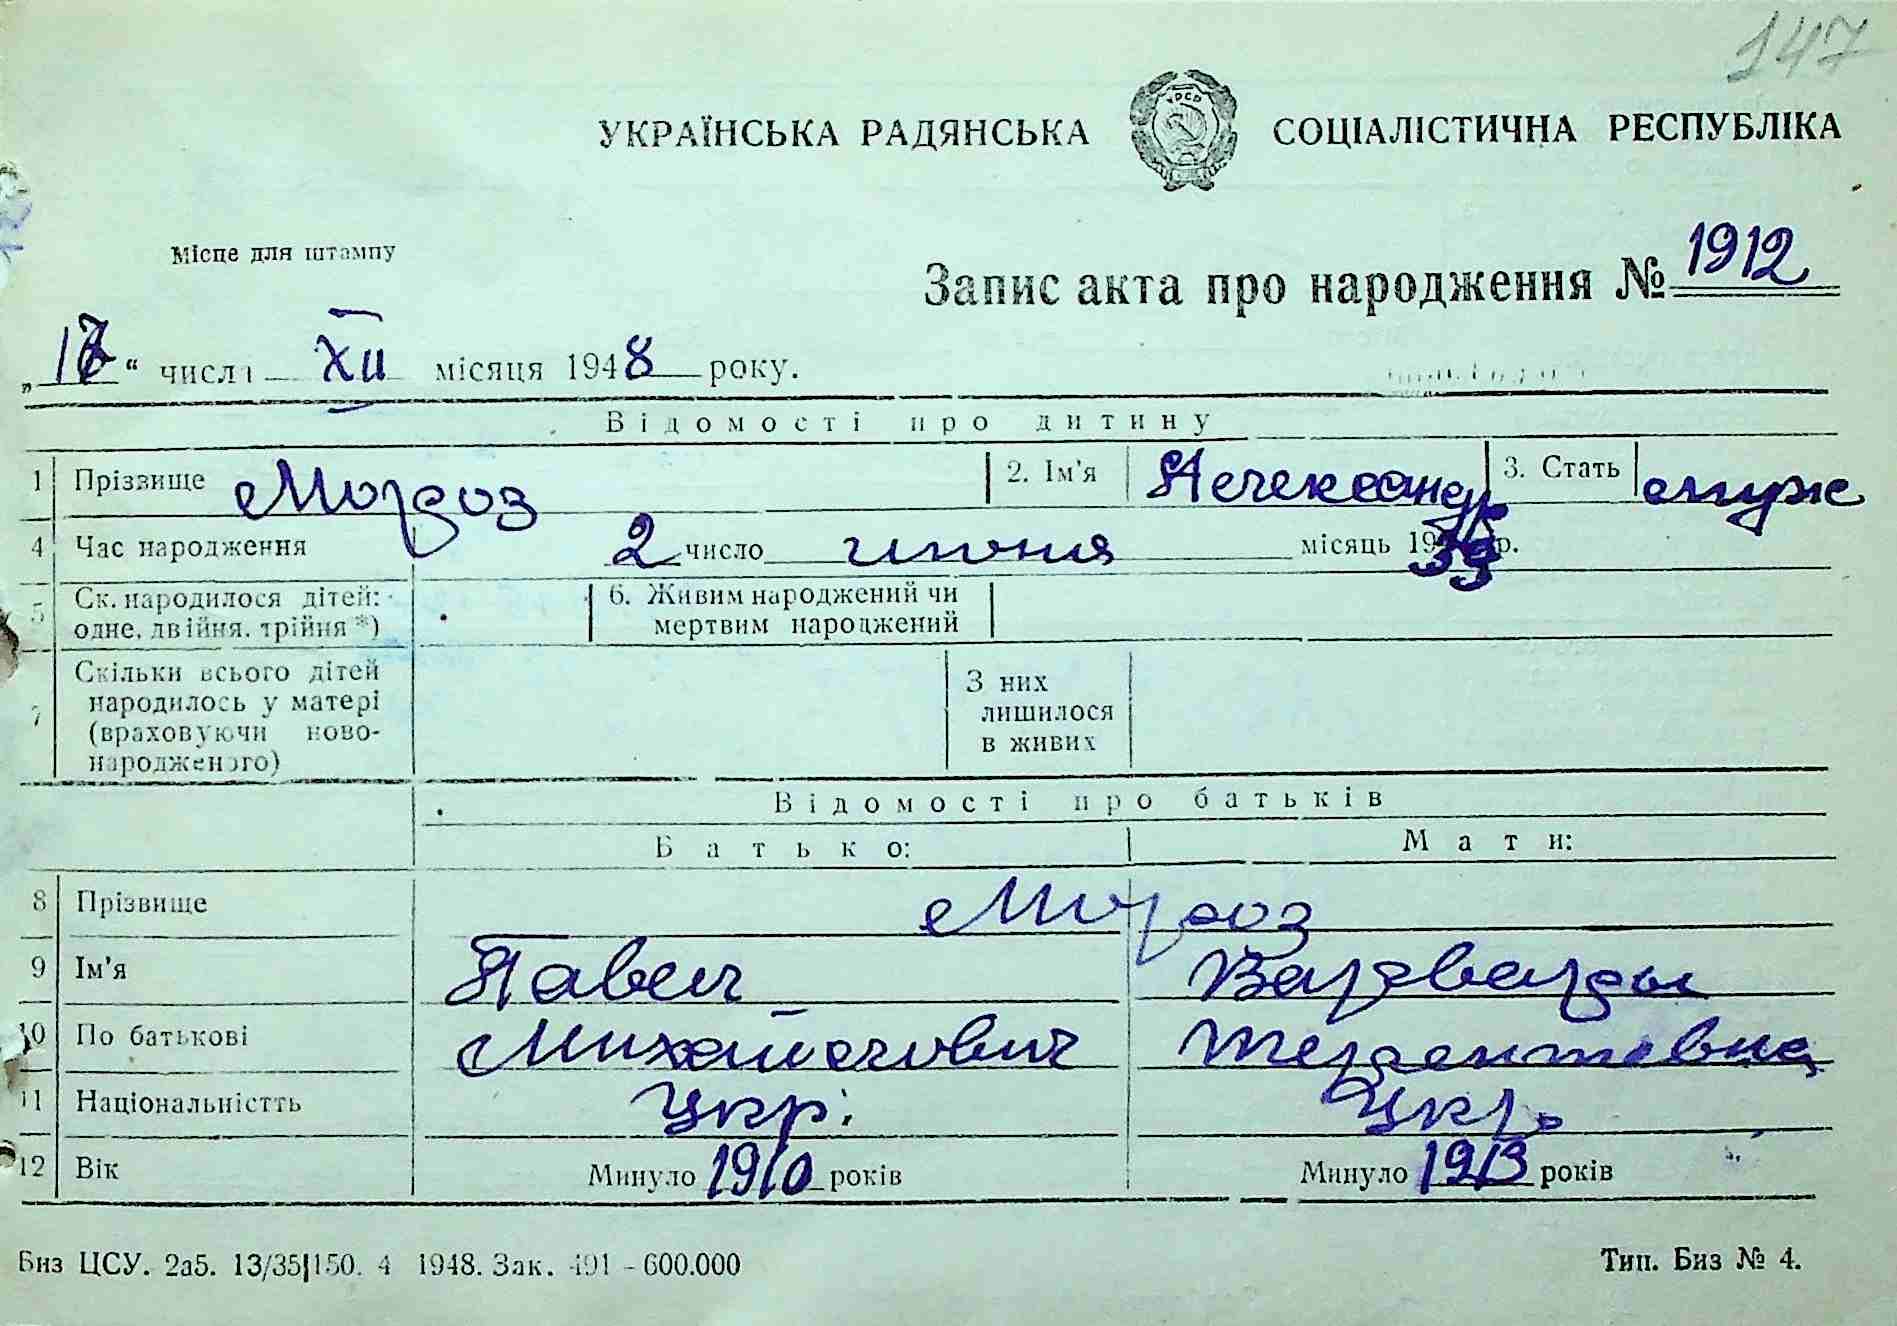 147
УКРАЇНСЬКА РАДЯНСЬКА СОЦІАЛІСТИЧНА РЕСПУБЛІКА
УРСР
Місце для штампу
Запис акта про народження № 1912
„ 17 “ числа XII місяця 1948 року.
Відомості про дитину
1 Прізвище Мороз 2. Ім'я Александр 3. Стать муж
4 Час народження 2 число июня місяць 1939 р.
5 Ск. народилося дітей: одне, двійня, трійня *) 6. Живим народжений чи мертвим народжений
7 Скільки всього дітей народилось у матері (враховуючи новонародженого) З них лишилося в живих
Відомості про батьків
Батько: Мати:
8 Прізвище Мороз
9 Ім'я Павел Варвара
10 По батькові Михайлович Терентевна
11 Національністть Укр. Укр.
12 Вік Минуло 1910 років Минуло 1913 років
Биз ЦСУ. 2а5. 13/35|150. 4 1948. Зак. 491 - 600.000 Тип. Биз № 4.